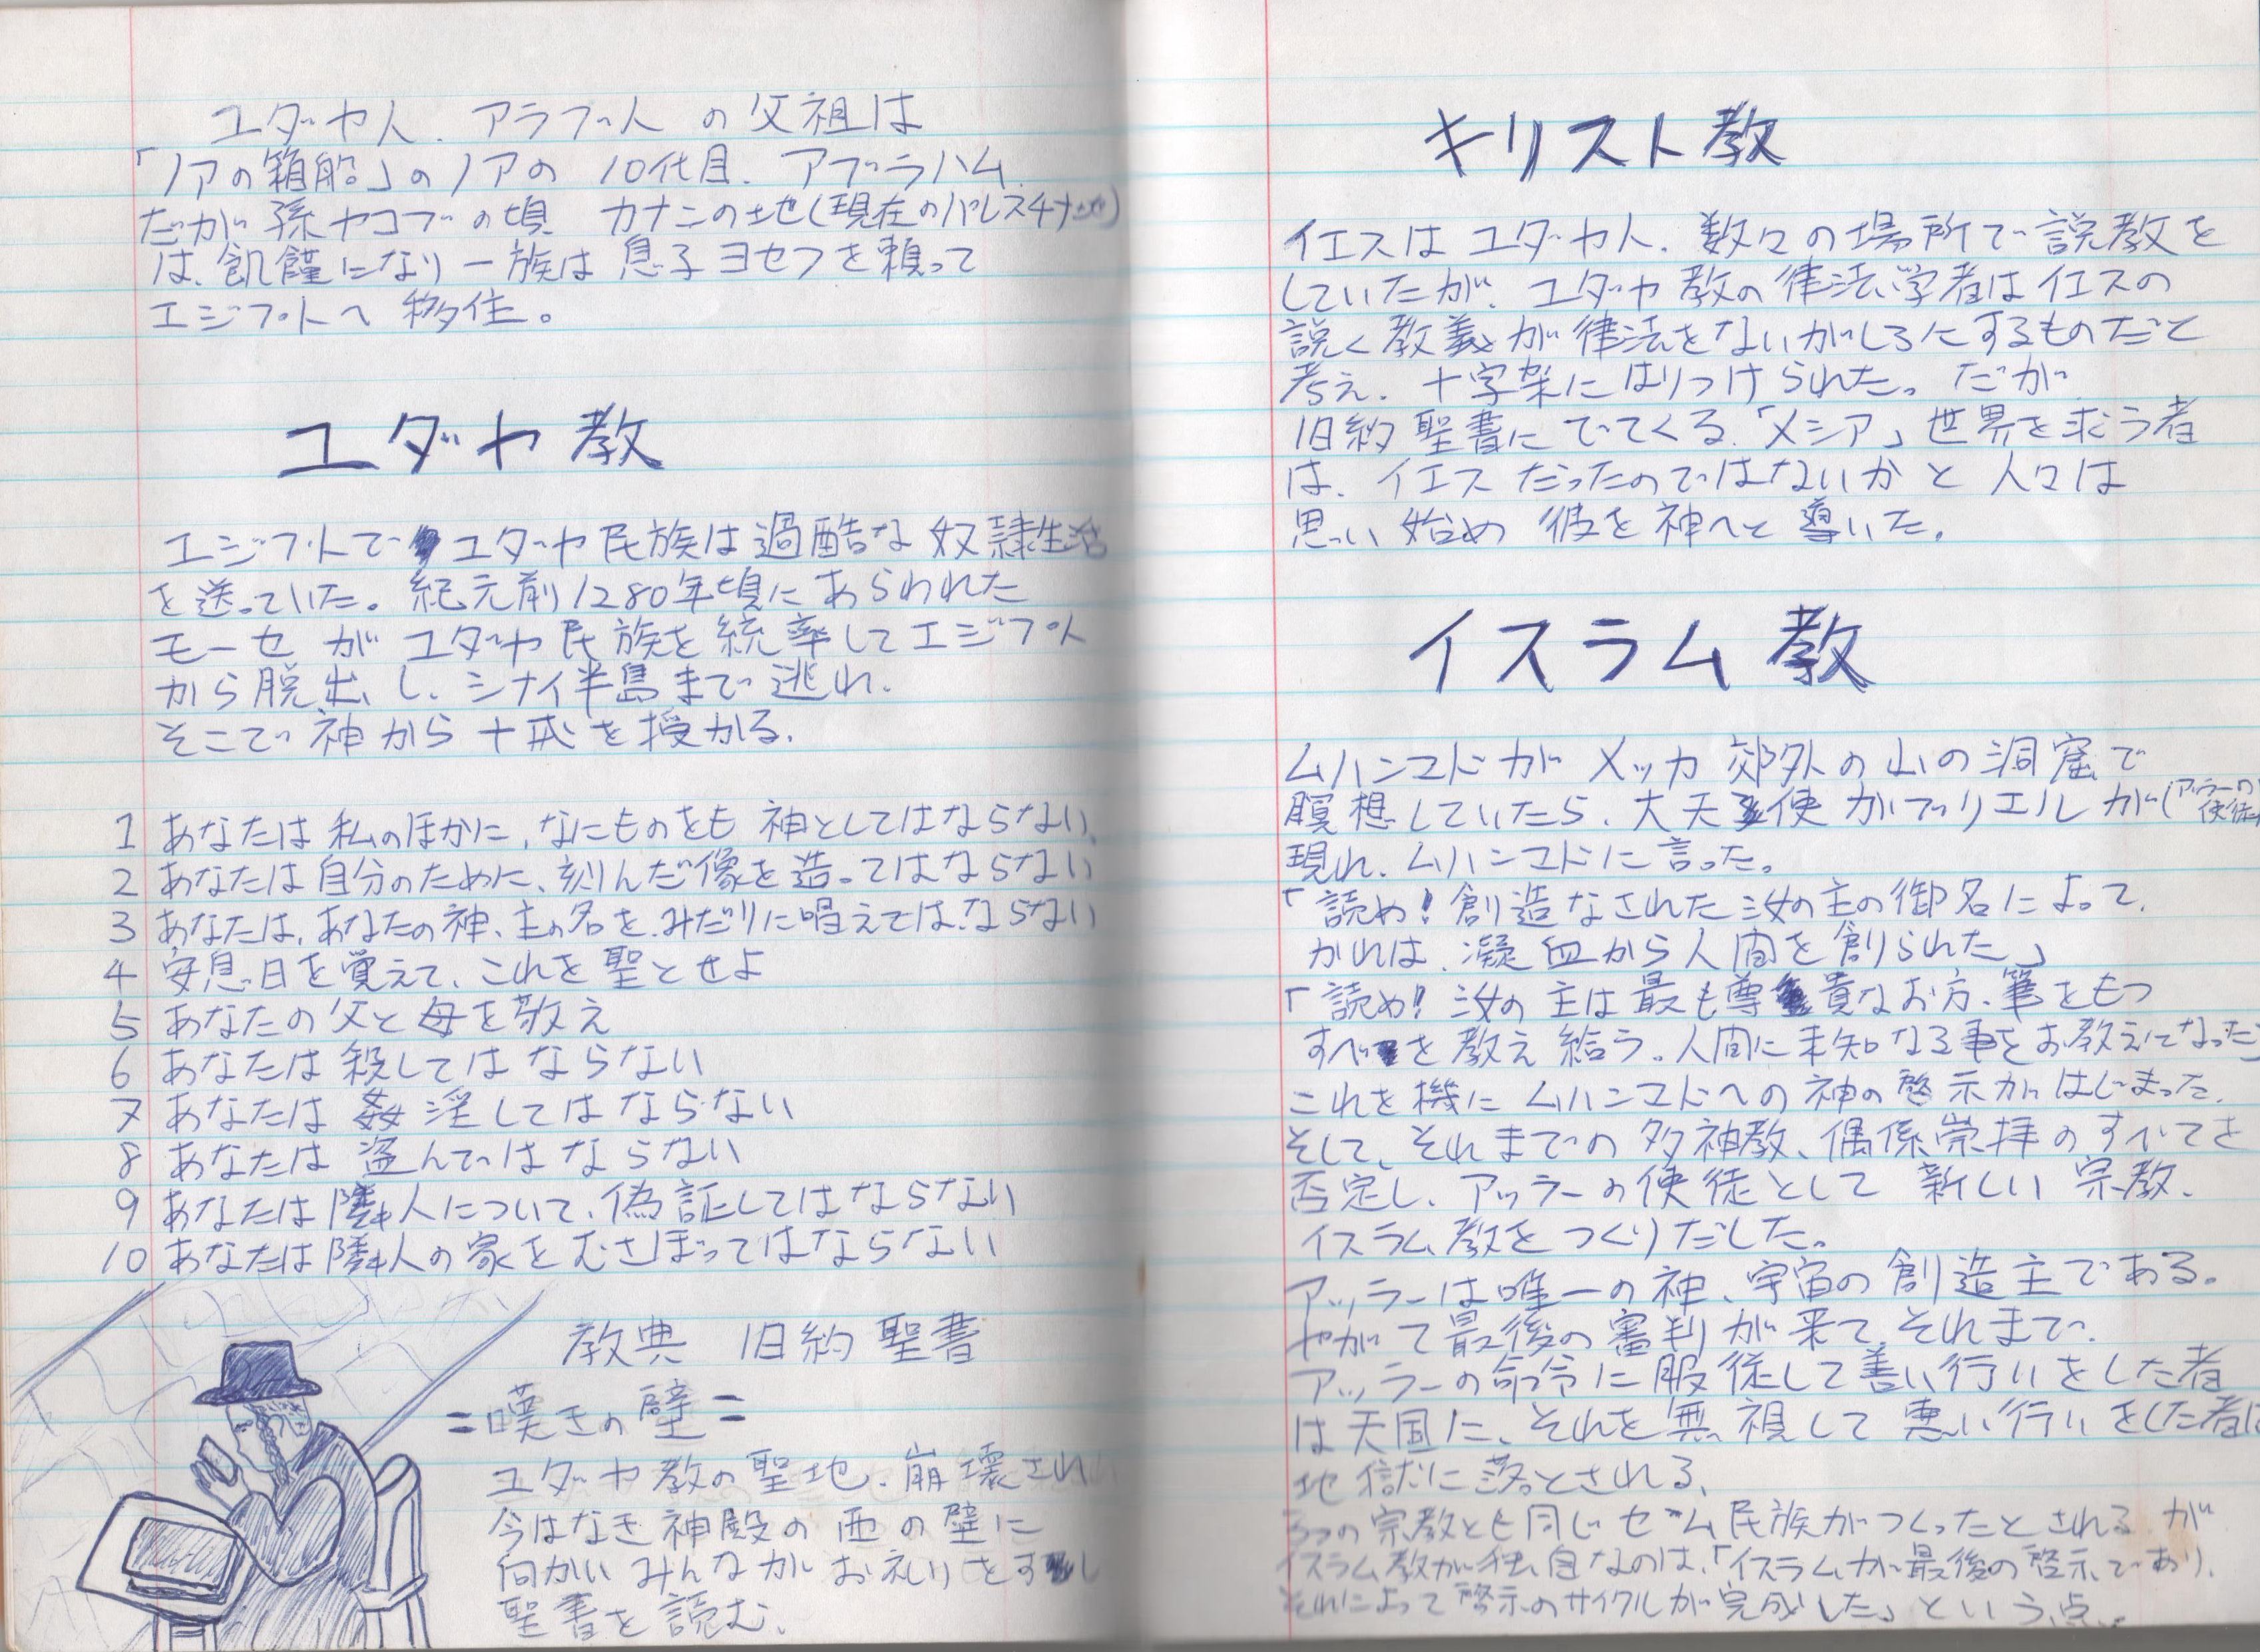 ユダヤ人、アラブ人 の父祖は
「ノアの箱船」のノアの 10代目、アブラハム
だが孫ヤコブの頃 カナンの地(現在のパレスチナ
は、飢饉になり一族は息子ヨセフを頼って
エジプトへ 移住。
ユダヤ教
エジプトで ユダヤ民族は過酷な奴隷生活
を送っていた。紀元前1280年頃にあらわれた
モーセ が ユダヤ民族を統率してエジプト
から脱出し、シナイ半島まで逃れ、
そこで神から十戒を授かる。
1 あなたは私のほかに、なにものをも 神としてはならない、
2 あなたは自分のために、刻んだ像を造ってはならない
3 あなたは、あなたの神、主の名を、みだりに唱えては、ならない
4 安息日を覚えて、これを聖とせよ
5 あなたの父と母を敬え
6 あなたは殺してはならない
7 あなたは姦淫してはならない
8 あなたは 盗んではならない
9 あなたは隣人について、偽証してはならない
10 あなたは隣人の家をむさぼってはならない
教典 旧約聖書
=嘆きの壁=
ユダヤ教の聖地、崩壊され
今はなき神殿の西の壁に
向かいみんながお祈りをすし
聖書を読む、
キリスト教
イエスはユダヤ人、数々の場所で説教を
していたが、ユダヤ教の律法学者はイエスの
説く教義が律法をないがしろにするものだと
考え、十字架にはりつけられた。だが
旧約聖書にでてくる、「メシア」世界を求う者
は、イエスだったのではないかと人々は
思い始め 彼を神へと導いた。
イスラム教
ムハンマドがメッカ郊外の山の洞窟で
瞑想していたら、大天使ガブリエルが(アッラーの使徒
現れ、ムハンマドに言った。
「読め!創造なされた汝の主の御名によって、
かれは、凝血から人間を創られた」
「読め!汝の主は最も尊貴なお方、筆をもつ
すべを教え給う。人間に未知なる事をお教えになった」
これを機にムハンマドへの神の啓示がはじまった。
そして、それまでの多神教、偶像崇拝のすべてを
否定し、アッラーの使徒として新しい宗教、
イスラム教をつくりだした。
アッラーは唯一の神、宇宙の創造主である。
やがて最後の審判が来て、それまで、
アッラーの命令に服従して善い行いをした者
は天国に、それを無視して悪い行いをした者は
地獄に落とされる、
3つの宗教とも同じセム民族がつくったとされるが
イスラム教が独自なのは、「イスラムが最後の啓示であり、
それによって啓示のサイクルが完成した」という点。